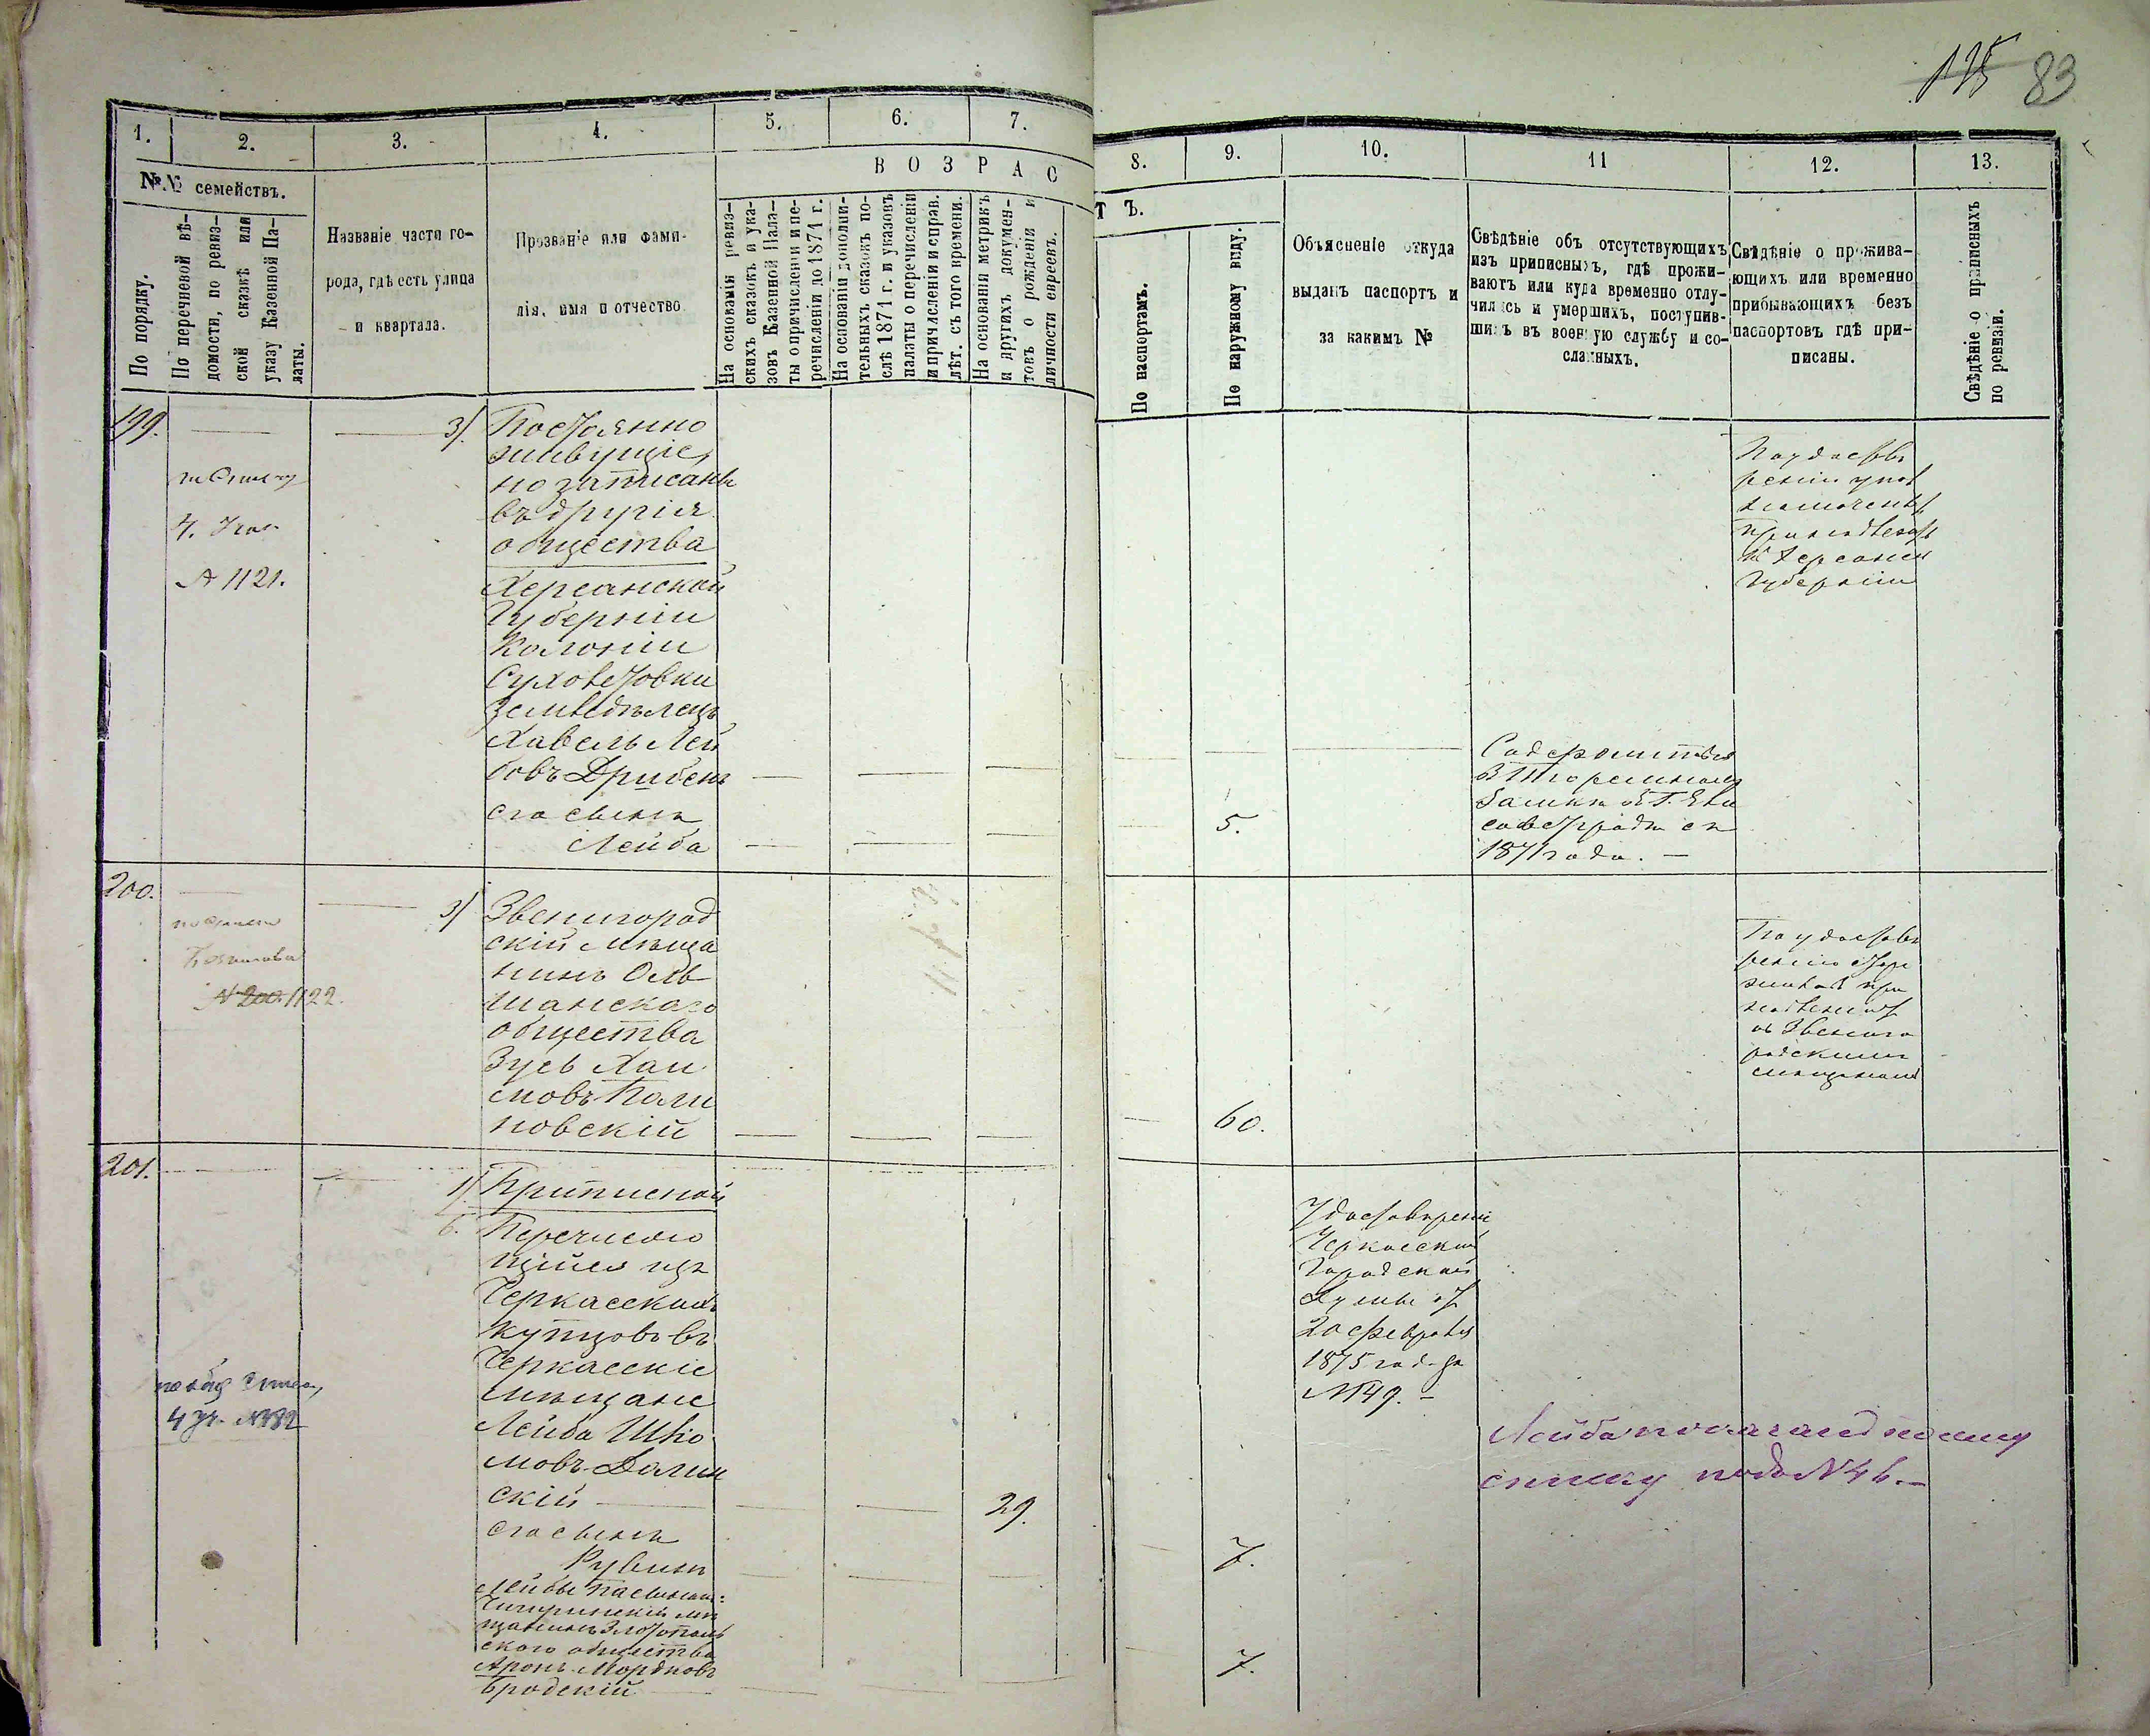 83
1.
2.
3.
4.
5.
6.
7.
8.
9.
10.
11
12.
13.
№.№ семействъ.
В О З Р А С
Т Ъ.
По порядку.
По перечневой вѣ-
домости, по ревиз-
ской сказкѣ или
указу Казенной Па-
латы.
Названіе части го-
рода, гдѣ есть улица
и квартала.
Прозваніе или фами-
лія, имя и отчество
На основаніи ревиз-
скихъ сказокъ и ука-
зовъ Казенной Пала-
ты о причисленіи и пе-
речисленіи до 1871 г.
На основаніи дополни-
тельныхъ сказокъ по-
слѣ 1871 г. и указовъ
палаты о перечисленіи
и причисленіи и справ.
лѣт. съ того времени.
На основаніи метрикъ
и другихъ докумен-
товъ о рожденіи и
личности евреевъ.
По паспортамъ.
По наружному виду.
Объясненіе откуда
выданъ паспортъ и
за какимъ №
Свѣдѣніе объ отсутствующихъ
изъ приписныхъ, гдѣ прожи-
ваютъ или куда временно отлу-
чились и умершихъ, поступив-
шихъ въ военную службу и со-
сланныхъ.
Свѣдѣніе о прожива-
ющихъ или временно
прибывающихъ безъ
паспортовъ гдѣ при-
писаны.
Свѣдѣніе о приписныхъ
по ревизіи.
199.
по списку
№ 1121.
3/. Постоянно
живущіе,
но записаны
въ другія
общества
Херсанской
Губерніи
Колоніи
земледѣлецъ
Хавель Лей
бовъ Дрибенъ
его сынъ
Лейба
5.
Содержится
въ Тюремномъ
замкѣ въ Г. Ели
саветградѣ съ
1871 года. —
По удостовѣ
ренію упол
номоченн
принадлежатъ
къ Херсанск
Губерніи
200.
по списку
№ 200 1122.
3/ Звенигород
скій мѣща
нинъ Оль
шанскаго
общества
Зусь Хаи
мовъ Поли
новскій
60.
По удостовѣ
ренію
при
надлежитъ
къ Звениго
родскимъ
мѣщанам
201.
4 уч. № 82
1/ Приписной
Б. Перечисляю
щійся изъ
Черкасскихъ
купцовъ въ
Черкасскіе
мѣщане
Лейба Шлio
мовъ Долин
скій
29.
его сынъ
Рувинъ
7.
Лейбы пасынокъ:
Чигиринскій мѣ
щанинъ Златополь
скаго общества
Аронъ Мордковъ
Бродскій
7.
Удостовѣреніе
Черкасской
Городской
Думы отъ
20 февраля
1875 года за
№ 149. —
Лейба
списку подъ № 46. —